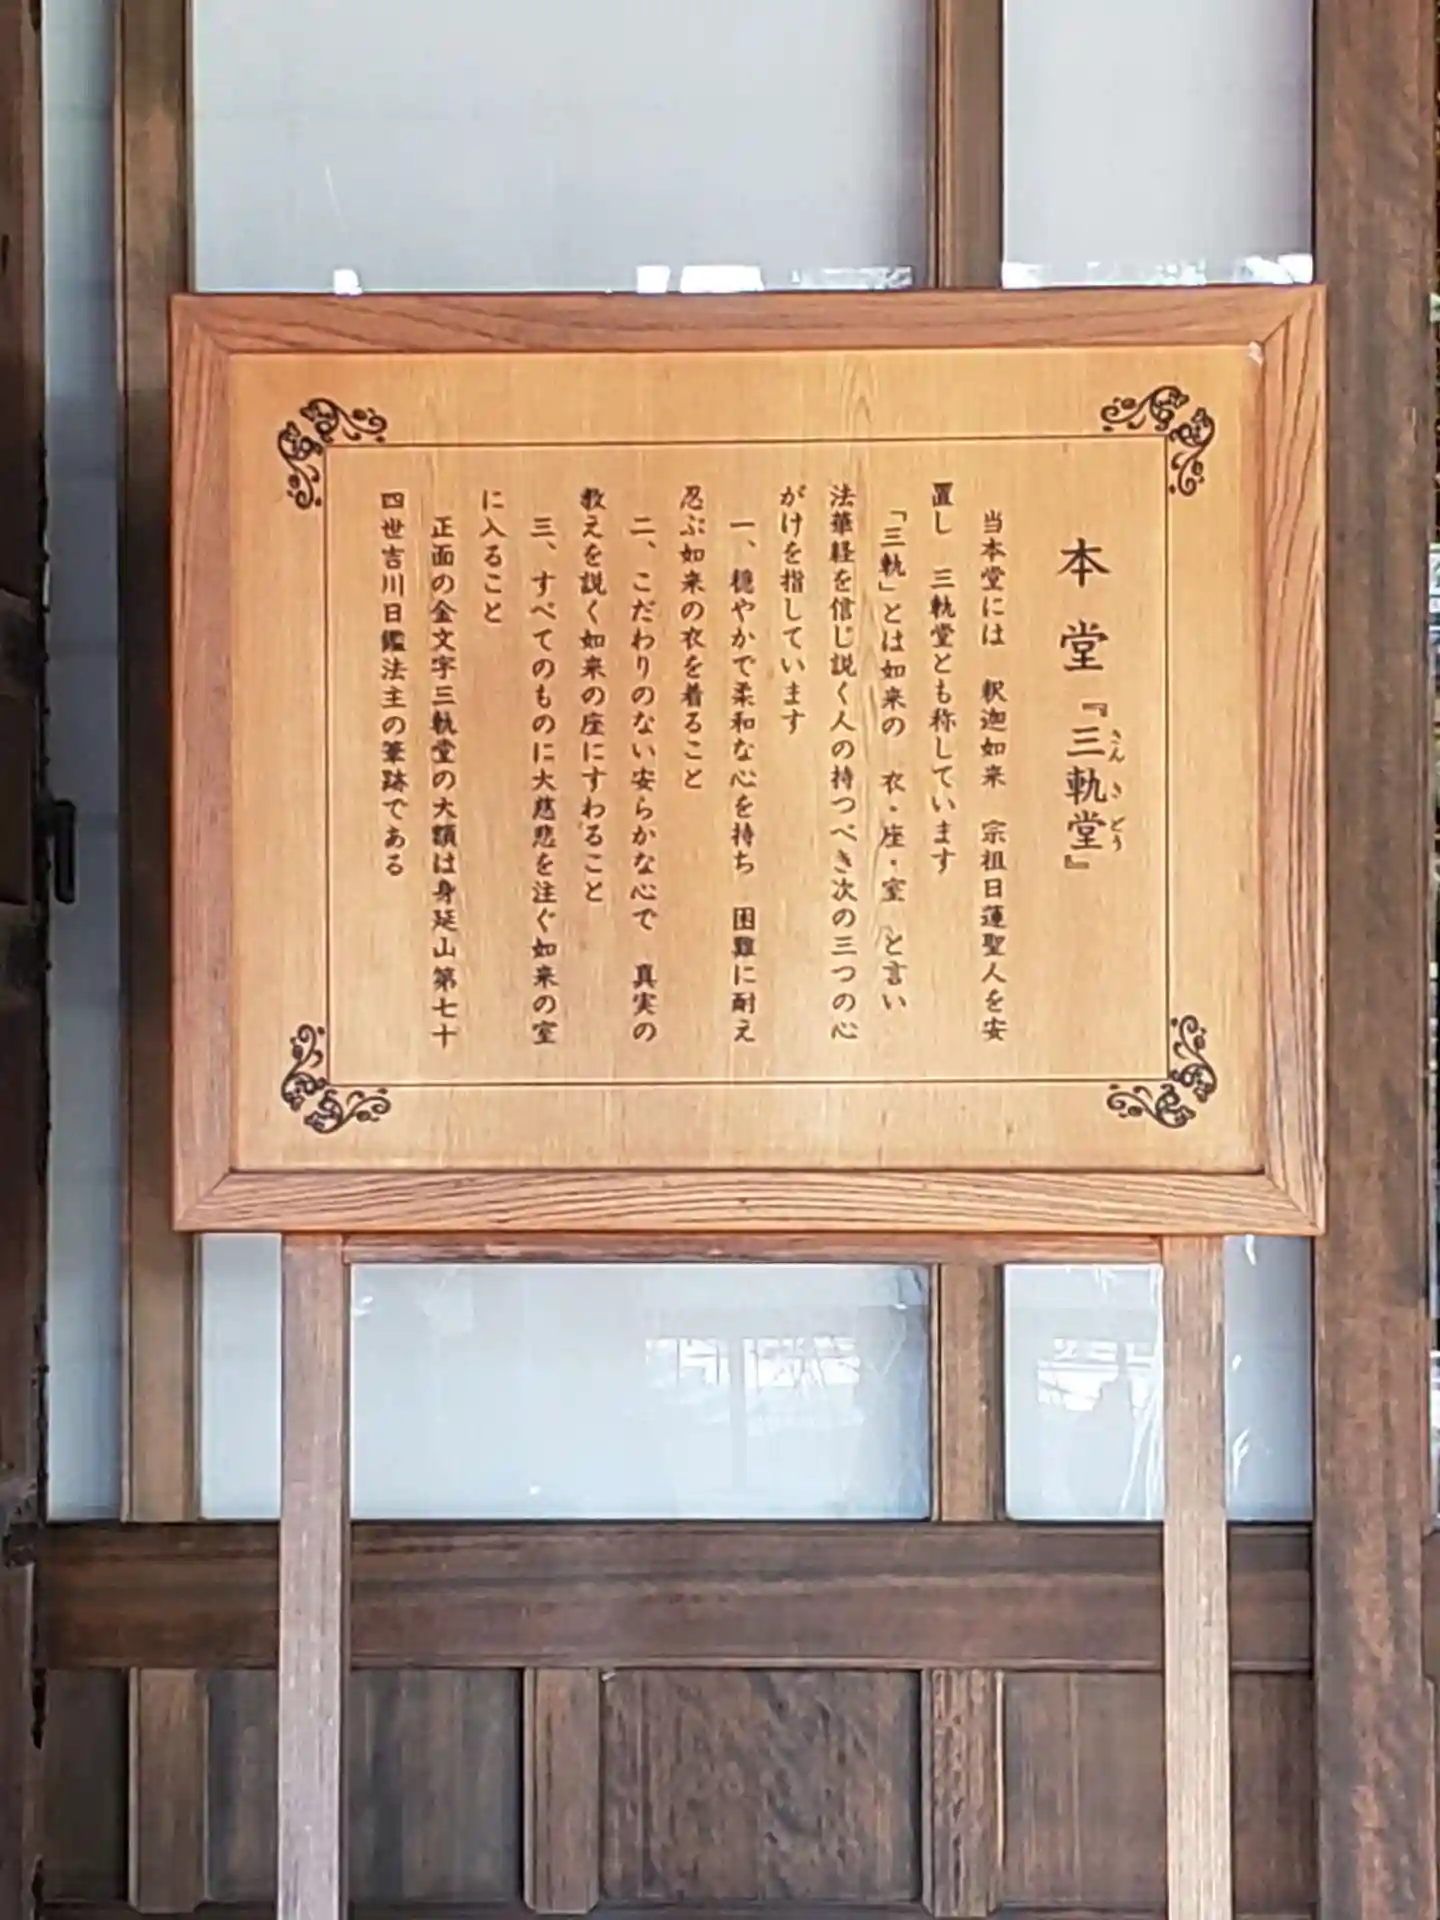 本堂『三軌堂』
さんきどう
当本堂には　釈迦如来　宗祖日蓮聖人を安
置し　三軌堂とも称しています
「三軌」とは如来の　衣・座・室　と言い
法華経を信じ説く人の持つべき次の三つの心
がけを指しています
一、穏やかで柔和な心を持ち　困難に耐え
忍ぶ如来の衣を着ること
二、こだわりのない安らかな心で　真実の
教えを説く如来の座にすわること
三、すべてのものに大慈悲を注ぐ如来の室
に入ること
正面の金文字三軌堂の大額は身延山第七十
四世吉川日鑑法主の筆跡である